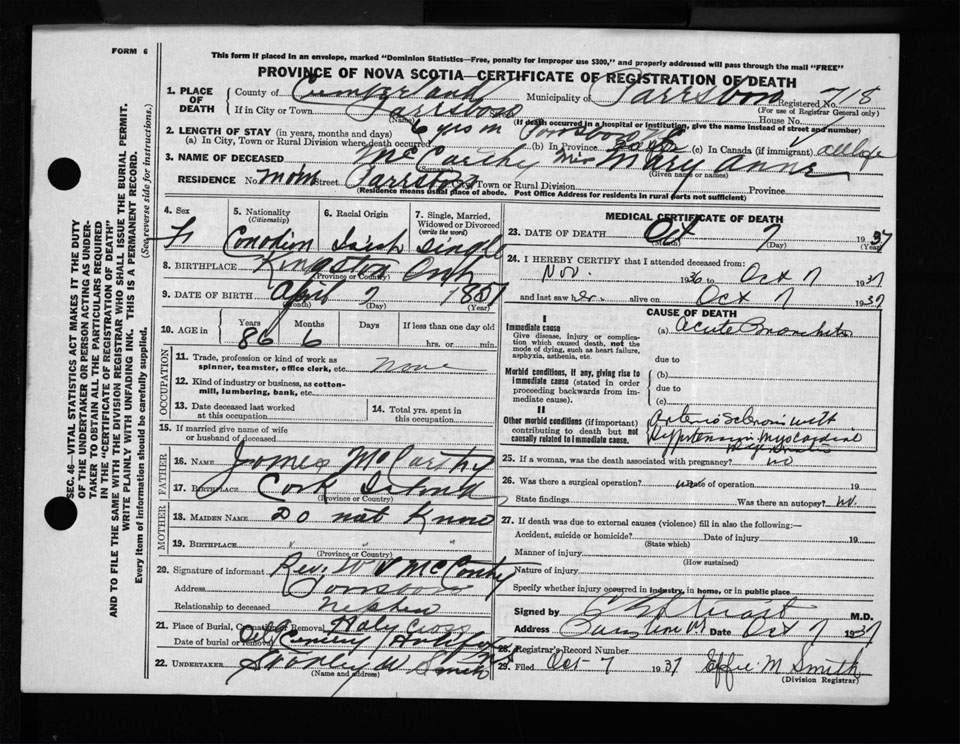 FORM 6
This form if placed in an envelope, marked "Dominion Statistics—Free, penalty for improper use $300," and properly addressed will pass through the mail "FREE"
PROVINCE OF NOVA SCOTIA—CERTIFICATE OF REGISTRATION OF DEATH
1. PLACE OF DEATH County of Cumberland Municipality of Parrsboro Registered No. 718
(For use of Registrar General only)
If in City or Town Parrsboro House No.
(Name) (If death occurred in a hospital or institution, give the name instead of street and number)
2. LENGTH OF STAY (in years, months and days) 6 yrs in Parrsboro
(a) In City, Town or Rural Division where death occurred (b) In Province (c) In Canada (if immigrant) all life
3. NAME OF DECEASED McCarthy Mrs Mary Anne
(Surname) (Given name or names)
RESIDENCE No. Main Street Parrsboro City, Town or Rural Division Province
(Residence means usual place of abode. Post Office Address for residents in rural parts not sufficient)
4. Sex 5. Nationality (Citizenship) 6. Racial Origin 7. Single, Married, Widowed or Divorced (write the word)
F Canadian Irish Single
8. BIRTHPLACE Kingston Ont
(Province or Country)
9. DATE OF BIRTH April 7 1851
(Month) (Day) (Year)
10. AGE in Years Months Days If less than one day
86 6 hrs. or min.
OCCUPATION
11. Trade, profession or kind of work as spinner, teamster, office clerk, etc. None
12. Kind of industry or business, as cotton-mill, lumbering, bank, etc.
13. Date deceased last worked at this occupation 14. Total yrs. spent in this occupation
15. If married give name of wife or husband of deceased
FATHER
16. NAME James McCarthy
17. Birthplace Cork Ireland
(Province or Country)
MOTHER
18. MAIDEN NAME Do not Know
19. BIRTHPLACE " " "
(Province or Country)
20. Signature of informant Rev. W V McCarthy
Address Parrsboro
Relationship to deceased nephew
21. Place of Burial, Cremation or Removal Holy Cross
Date of burial or removal Cemetery Halifax
22. UNDERTAKER Stanley W Smith
(Name and address)
MEDICAL CERTIFICATE OF DEATH
23. DATE OF DEATH Oct 7 1937
(Month) (Day) (Year)
24. I HEREBY CERTIFY that I attended deceased from:
Nov. 1936 to Oct 7 1937
and last saw her alive on Oct 7 1937
CAUSE OF DEATH
I
Immediate cause (a) Acute Bronchitis
Give disease, injury or complication which caused death, not the mode of dying, such as heart failure, asphyxia, asthenia, etc.
due to
Morbid conditions, if any, giving rise to immediate cause (stated in order proceeding backwards from immediate cause). (b)
due to
(c)
II
Other morbid conditions (if important) contributing to death but not causally related to immediate cause. Arterio Sclerosis with
Hypertension Myocardial
25. If a woman, was the death associated with pregnancy? no
26. Was there a surgical operation? no Date of operation 19
State findings Was there an autopsy? no.
27. If death was due to external causes (violence) fill in also the following:—
Accident, suicide or homicide? Date of injury 19
(State which)
Manner of injury
(How sustained)
Nature of injury
Specify whether injury occurred in Industry, in home, or in public place
Signed by M.D.
Address Date Oct 7 1937
28. Registrar's Record Number
29. Filed Oct-7 1937 Effie M Smith
(Division Registrar)
SEC. 46—VITAL STATISTICS ACT MAKES IT THE DUTY
OF THE UNDERTAKER OR PERSON ACTING AS UNDER-
TAKER TO OBTAIN ALL THE PARTICULARS REQUIRED
IN THE "CERTIFICATE OF REGISTRATION OF DEATH"
AND TO FILE THE SAME WITH THE DIVISION REGISTRAR WHO SHALL ISSUE THE BURIAL PERMIT.
WRITE PLAINLY WITH UNFADING INK. THIS IS A PERMANENT RECORD.
Every item of information should be carefully supplied. (See reverse side for instructions.)